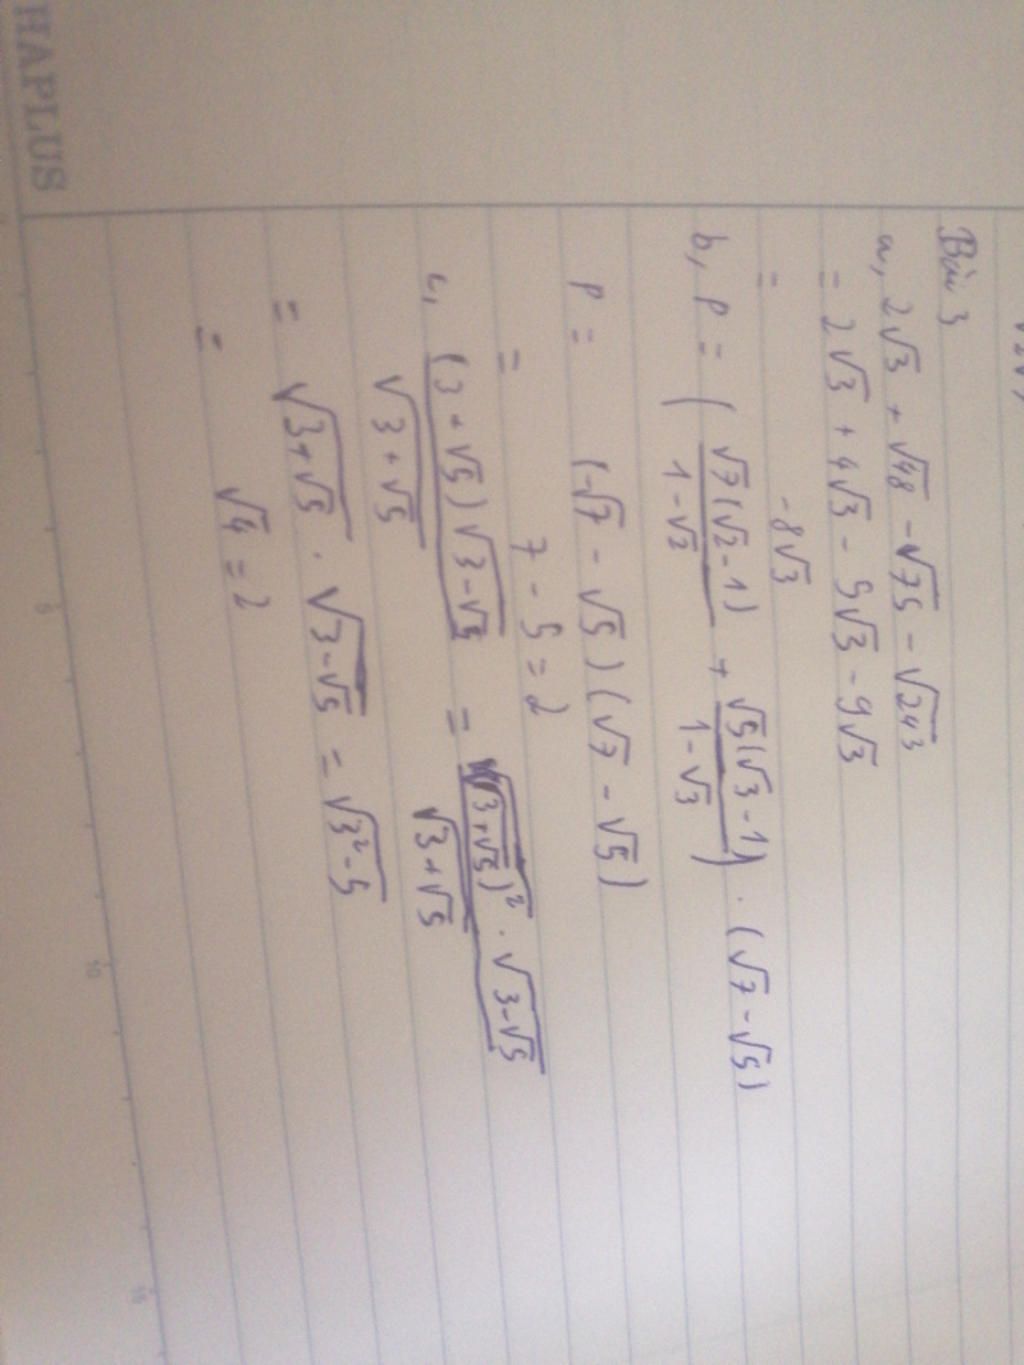 Bài 3
a, 2√3 + √48 - √75 - √243
= 2√3 + 4√3 - 5√3 - 9√3
= -8√3
b, P = ( √7(√2-1) / 1-√2 + √5(√3-1) / 1-√3 ) . (√7-√5)
P = (-√7 - √5)(√7 - √5)
= 7 - 5 = 2
c, (3+√5)√(3-√5) / √(3+√5) = √(3+√5)² . √(3-√5) / √(3+√5)
= √(3+√5) . √(3-√5) = √(3²-5)
= √4 = 2
HAPLUS
5
10
15